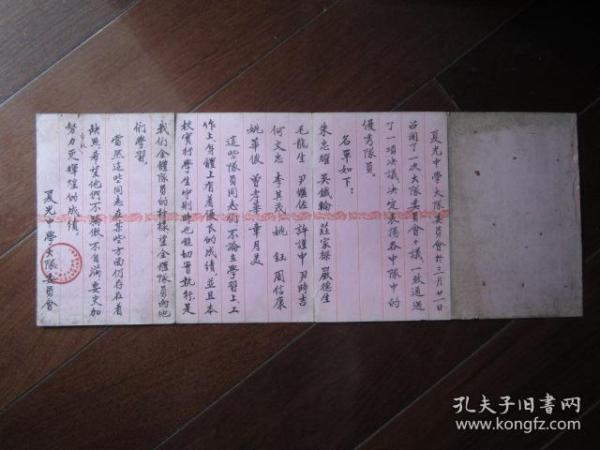 夏光中學大隊委員會於三月廿一日
召開了一次大隊委員會會議一致通過
了一項決議決定表揚各中隊中的
優秀隊員。
名單如下：
朱忠耀 吳鐵輪 莊家樑 嚴德生
毛龍生 尹繼佐 許謹中 尹時吉
何文忠 李其茂 姚鈺 周信康
姚華俊 曾孝華 章月美
這些隊員同志們不論在學習上、工
作上身體上有着優良的成績並且本
校實行學生守則時也能切實執行是
我們全體隊員的榜樣望全體隊員向他
們學習。
當然這些同志在某些方面仍存在着
缺點希望他們不驕傲不自滿要更加
努力更輝煌的成績。
夏光中學大隊委員會
孔夫子旧书网
www.kongfz.com